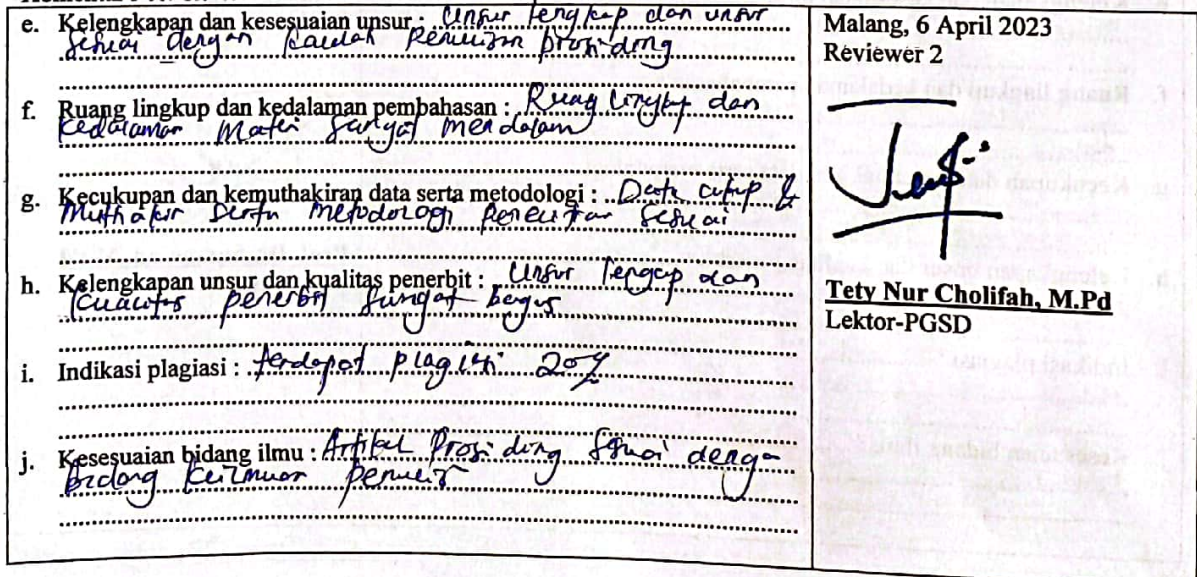 e. Kelengkapan dan kesesuaian unsur : Unsur lengkap dan unsur
sesuai dengan kaidah penulisan prosiding
f. Ruang lingkup dan kedalaman pembahasan : Ruag lingkup dan
kedalaman materi sangat mendalam
g. Kecukupan dan kemuthakiran data serta metodologi : Data cukup &
Muthakir serta metodologi penelitian sesuai
h. Kelengkapan unsur dan kualitas penerbit : Unsur lengkap dan
kualitas penerbit sangat bagus
i. Indikasi plagiasi : terdapat plagiasi 20%
j. Kesesuaian bidang ilmu : Artikel Prosiding sesuai dengan
bidang keilmuan penulis
Malang, 6 April 2023
Reviewer 2
Tety Nur Cholifah, M.Pd
Lektor-PGSD